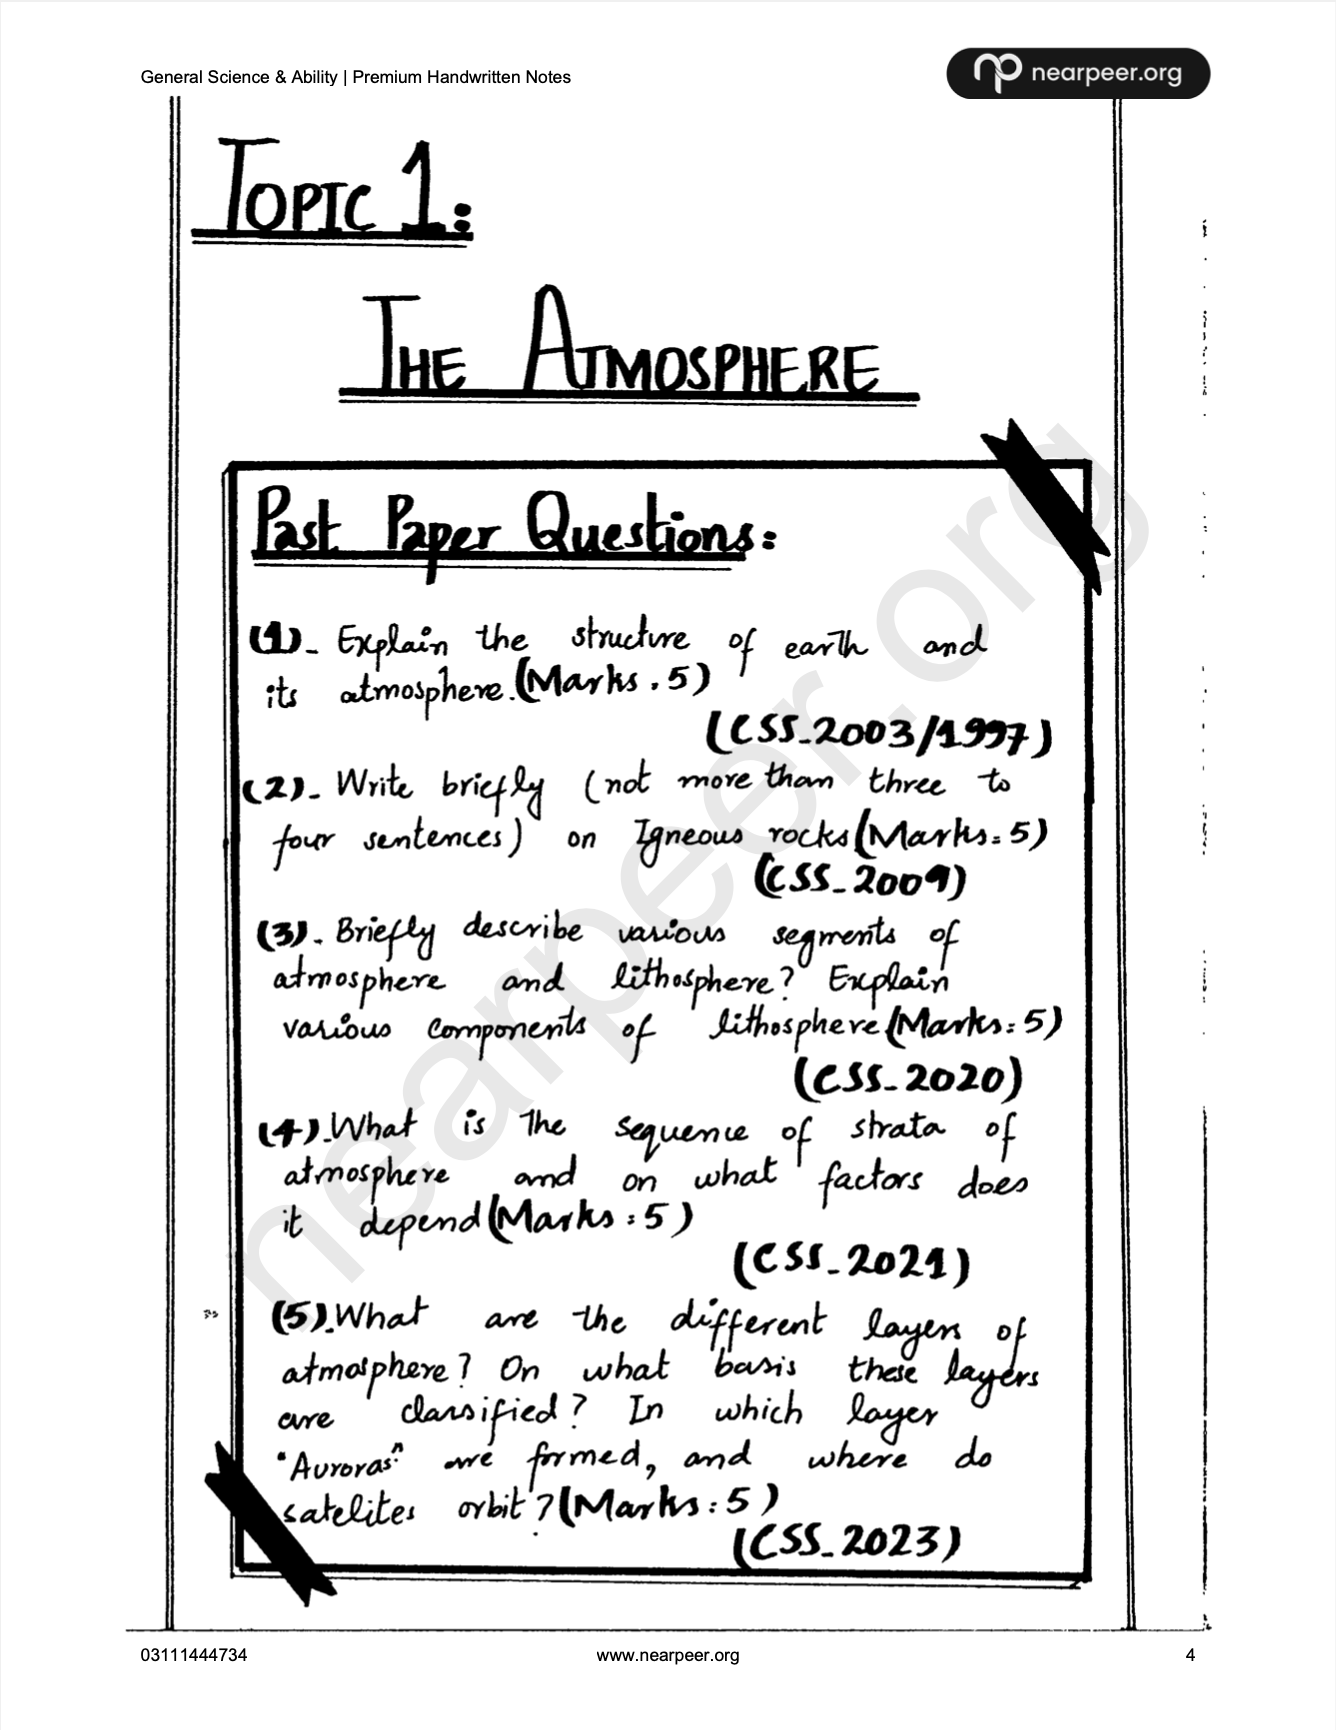 General Science & Ability | Premium Handwritten Notes
nearpeer.org
TOPIC 1:
THE ATMOSPHERE
Past Paper Questions:
(1)- Explain the structure of earth and
its atmosphere.(Marks.5)
(CSS-2003/1997)
(2)- Write briefly (not more than three to
four sentences) on Igneous rocks(Marks=5)
(CSS-2009)
(3)- Briefly describe various segments of
atmosphere and lithosphere? Explain
various components of lithosphere(Marks:5)
(CSS-2020)
(4)-What is the sequence of strata of
atmosphere and on what factors does
it depend(Marks:5)
(CSS-2021)
(5)-What are the different layers of
atmosphere? On what basis these layers
are classified? In which layer
"Auroras" are formed, and where do
satelites orbit?(Marks:5)
(CSS-2023)
nearpeer.org
03111444734 www.nearpeer.org 4